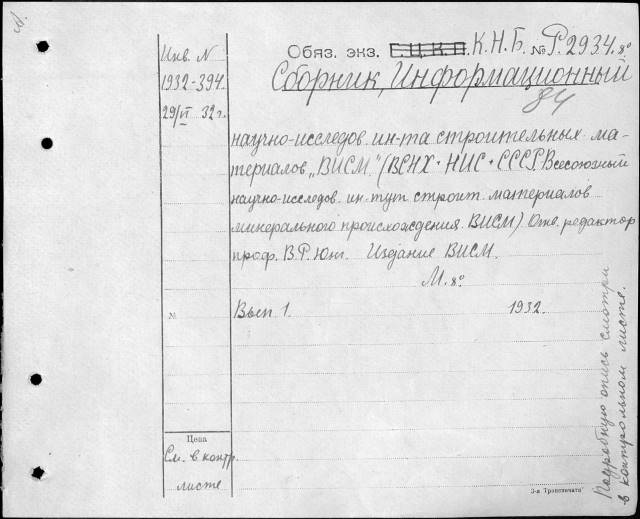 Инв. N
1932-394.
29/VI 32 г.
Обяз. экз. С.Ц.К.П. К.Н.Б. № Р.2934. 8°
Сборник, Информационный
84
научно-исследов. ин-та строительных ма-
териалов „ВИСМ." (ВСНХ • НИС • СССР Всесоюзный
научно-исследов. ин-тут строит. материалов
минерального происхождения. ВИСМ.) Отв. редактор
проф. В.Р. Юнг. Издание ВИСМ.
М. 8°
№ Вып 1. 1932.
Цена
См. в контр.
листе
Подробную опись смотри
в контрольном листе.
3-я Транспечати